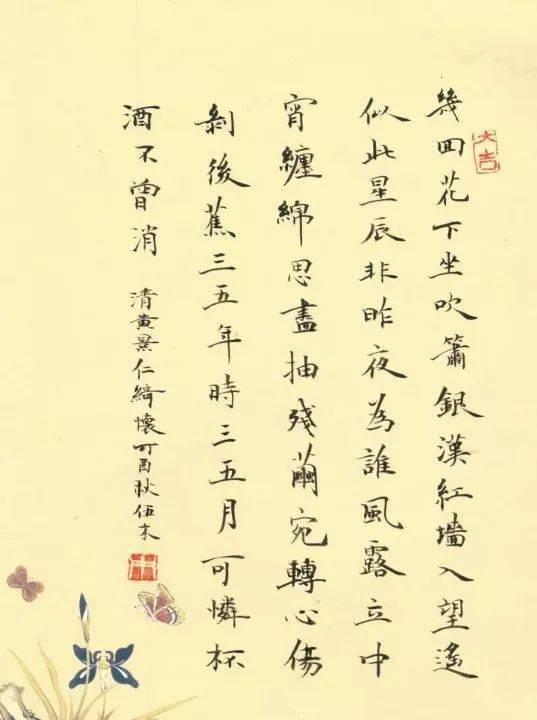 大吉
幾回花下坐吹簫銀漢紅墻入望遙
似此星辰非昨夜為誰風露立中
宵纏綿思盡抽殘繭宛轉心傷
剝後蕉三五年時三五月可憐杯
酒不曾消
清黃景仁綺懷丁酉秋伍木